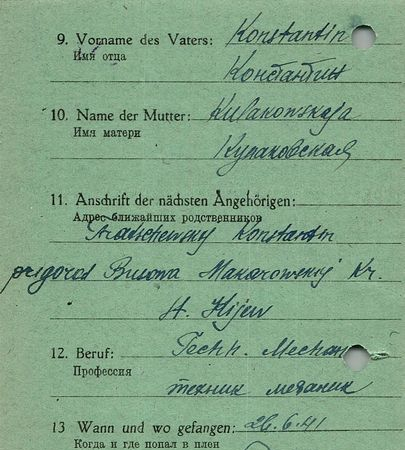 9. Vorname des Vaters: Konstantin
Имя отца
Константин
10. Name der Mutter: Kulakowskaja
Имя матери
Кулаковская
11. Anschrift der nächsten Angehörigen:
Адрес ближайших родственников
Konstantin
prigorod Busowa Makarowskij Kr.
St. Kijew
12. Beruf: Techn. Mechan
Профессия
техник механик
13 Wann und wo gefangen: 26.6.41
Когда и где попал в плен